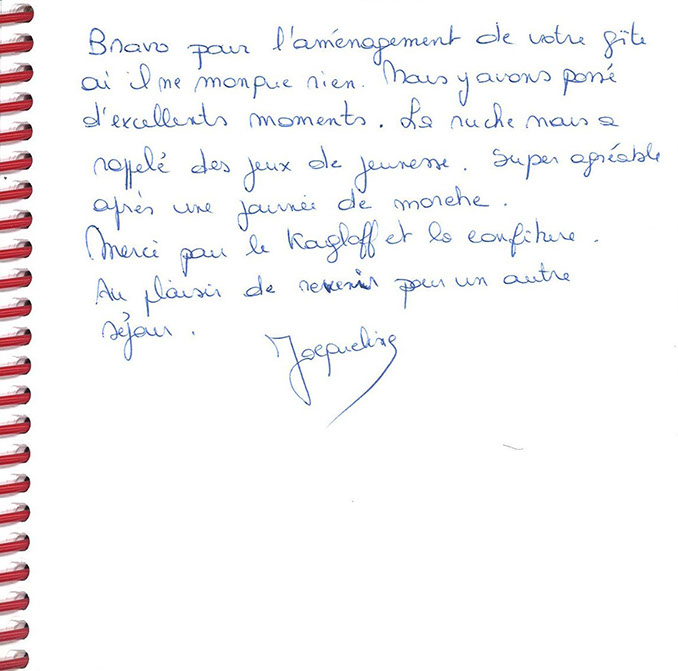 Bravo pour l'aménagement de votre gîte
où il ne manque rien. Nous y avons passé
d'excellents moments. La ruche nous a
rappelé des jeux de jeunesse. Super agréable
après une journée de marche.
Merci pour le Kugloff et la confiture.
Au plaisir de revenir pour un autre
séjour.
Jacqueline